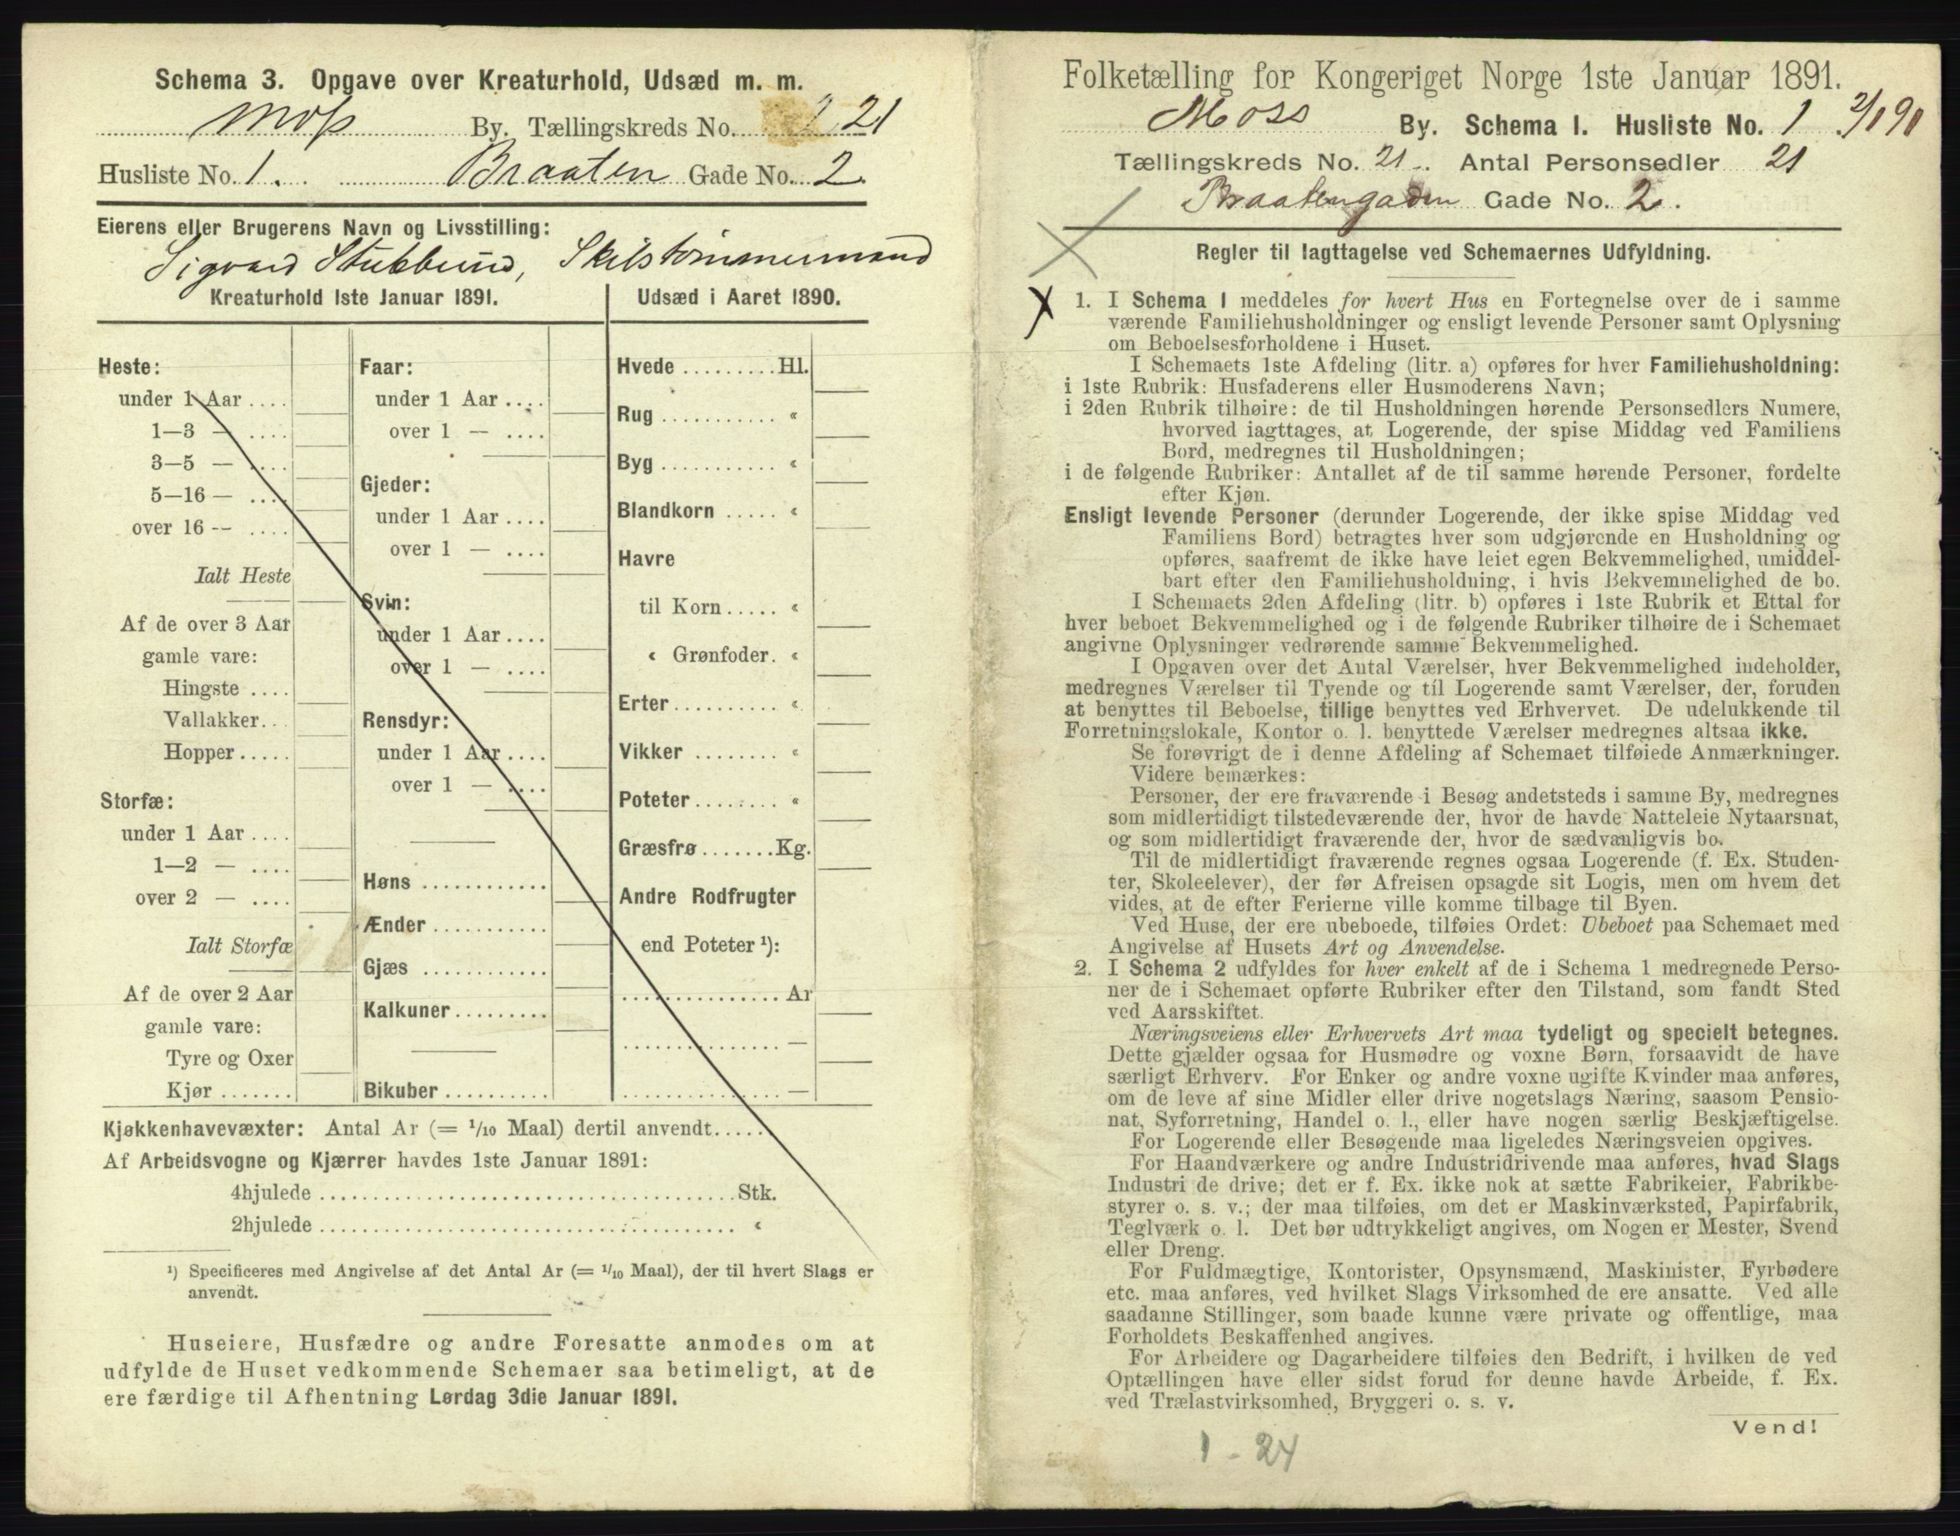 Schema 3. Opgave over Kreaturhold, Udsæd m. m.
Moss By. Tællingskreds No. 21
Husliste No. 1. Braaten Gade No. 2.
Eierens eller Brugerens Navn og Livsstilling:
Sigvard Stubberud, Skibstømmermand
Kreaturhold 1ste Januar 1891.
Heste:
under 1 Aar ....
1—3 — ....
3—5 — ....
5—16 — ....
over 16 — ....
Ialt Heste
Af de over 3 Aar
gamle vare:
Hingste ....
Vallakker...
Hopper.....
Storfæ:
under 1 Aar ....
1—2 — ....
over 2 — ....
Ialt Storfæ
Af de over 2 Aar
gamle vare:
Tyre og Oxer
Kjør .......
Faar:
under 1 Aar ....
over 1 — ....
Gjeder:
under 1 Aar ....
over 1 — ....
Svin:
under 1 Aar ....
over 1 — ....
Rensdyr:
under 1 Aar ....
over 1 — ....
Høns ............
Ænder ...........
Gjæs ............
Kalkuner.........
Bikuber ..........
Udsæd i Aaret 1890.
Hvede .........Hl.
Rug ........... «
Byg ........... «
Blandkorn ..... «
Havre
til Korn ..... «
« Grønfoder. «
Erter.......... «
Vikker ........ «
Poteter........ «
Græsfrø .......Kg.
Andre Rodfrugter
end Poteter ¹):
...............Ar
............... —
............... —
Kjøkkenhavevæxter: Antal Ar (= 1/10 Maal) dertil anvendt.....
Af Arbeidsvogne og Kjærrer havdes 1ste Januar 1891:
4hjulede ......................................Stk.
2hjulede ...................................... «
¹) Specificeres med Angivelse af det Antal Ar (= 1/10 Maal), der til hvert Slags er
anvendt.
Huseiere, Husfædre og andre Foresatte anmodes om at
udfylde de Huset vedkommende Schemaer saa betimeligt, at de
ere færdige til Afhentning Lørdag 3die Januar 1891.
Folketælling for Kongeriget Norge 1ste Januar 1891.
Moss By. Schema I. Husliste No. 1
Tællingskreds No. 21. Antal Personsedler 21
Braatengaden Gade No. 2.
Regler til Iagttagelse ved Schemaernes Udfyldning.
1. I Schema 1 meddeles for hvert Hus en Fortegnelse over de i samme
værende Familiehusholdninger og ensligt levende Personer samt Oplysning
om Beboelsesforholdene i Huset.
I Schemaets 1ste Afdeling (litr. a) opføres for hver Familiehusholdning:
i 1ste Rubrik: Husfaderens eller Husmoderens Navn;
i 2den Rubrik tilhøire: de til Husholdningen hørende Personsedlers Numere,
hvorved iagttages, at Logerende, der spise Middag ved Familiens
Bord, medregnes til Husholdningen;
i de følgende Rubriker: Antallet af de til samme hørende Personer, fordelte
efter Kjøn.
Ensligt levende Personer (derunder Logerende, der ikke spise Middag ved
Familiens Bord) betragtes hver som udgjørende en Husholdning og
opføres, saafremt de ikke have leiet egen Bekvemmelighed, umiddel-
bart efter den Familiehusholdning, i hvis Bekvemmelighed de bo.
I Schemaets 2den Afdeling (litr. b) opføres i 1ste Rubrik et Ettal for
hver beboet Bekvemmelighed og i de følgende Rubriker tilhøire de i Schemaet
angivne Oplysninger vedrørende samme Bekvemmelighed.
I Opgaven over det Antal Værelser, hver Bekvemmelighed indeholder,
medregnes Værelser til Tyende og til Logerende samt Værelser, der, foruden
at benyttes til Beboelse, tillige benyttes ved Erhvervet. De udelukkende til
Forretningslokale, Kontor o. l. benyttede Værelser medregnes altsaa ikke.
Se forøvrigt de i denne Afdeling af Schemaet tilføiede Anmærkninger.
Videre bemærkes:
Personer, der ere fraværende i Besøg andetsteds i samme By, medregnes
som midlertidigt tilstedeværende der, hvor de havde Natteleie Nytaarsnat,
og som midlertidigt fraværende der, hvor de sædvanligvis bo.
Til de midlertidigt fraværende regnes ogsaa Logerende (f. Ex. Studen-
ter, Skoleelever), der før Afreisen opsagde sit Logis, men om hvem det
vides, at de efter Ferierne ville komme tilbage til Byen.
Ved Huse, der ere ubeboede, tilføies Ordet: Ubeboet paa Schemaet med
Angivelse af Husets Art og Anvendelse.
2. I Schema 2 udfyldes for hver enkelt af de i Schema 1 medregnede Perso-
ner de i Schemaet opførte Rubriker efter den Tilstand, som fandt Sted
ved Aarsskiftet.
Næringsveiens eller Erhvervets Art maa tydeligt og specielt betegnes.
Dette gjælder ogsaa for Husmødre og voxne Børn, forsaavidt de have
særligt Erhverv. For Enker og andre voxne ugifte Kvinder maa anføres,
om de leve af sine Midler eller drive nogetslags Næring, saasom Pensio-
nat, Syforretning, Handel o. l., eller have nogen særlig Beskjæftigelse.
For Logerende eller Besøgende maa ligeledes Næringsveien opgives.
For Haandværkere og andre Industridrivende maa anføres, hvad Slags
Industri de drive; det er f. Ex. ikke nok at sætte Fabrikeier, Fabrikbe-
styrer o. s. v.; der maa tilføies, om det er Maskinværksted, Papirfabrik,
Teglværk o. l. Det bør udtrykkeligt angives, om Nogen er Mester, Svend
eller Dreng.
For Fuldmægtige, Kontorister, Opsynsmænd, Maskinister, Fyrbødere
etc. maa anføres, ved hvilket Slags Virksomhed de ere ansatte. Ved alle
saadanne Stillinger, som baade kunne være private og offentlige, maa
Forholdets Beskaffenhed angives.
For Arbeidere og Dagarbeidere tilføies den Bedrift, i hvilken de ved
Optællingen have eller sidst forud for denne havde Arbeide, f. Ex.
ved Trælastvirksomhed, Bryggeri o. s. v.
Vend!
1 - 24